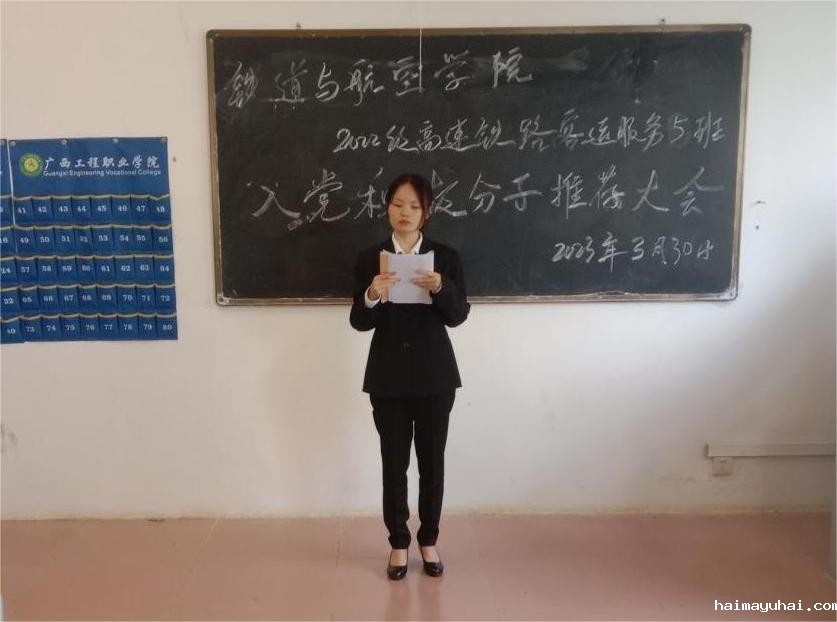 铁道与航空学院
2022级高速铁路客运服务5班
入党积极分子推荐大会
2023年3月30日
广西工程职业学院
Guangxi Engineering Vocational College
41 42 43 44 45 46 47 48
49 50 51 52 53 54 55 56
24 57 58 59 60 61 62 63 64
32 65 66 67 68 69 70 71 72
40 73 74 75 76 77 78 79 80
haimayuhai.com